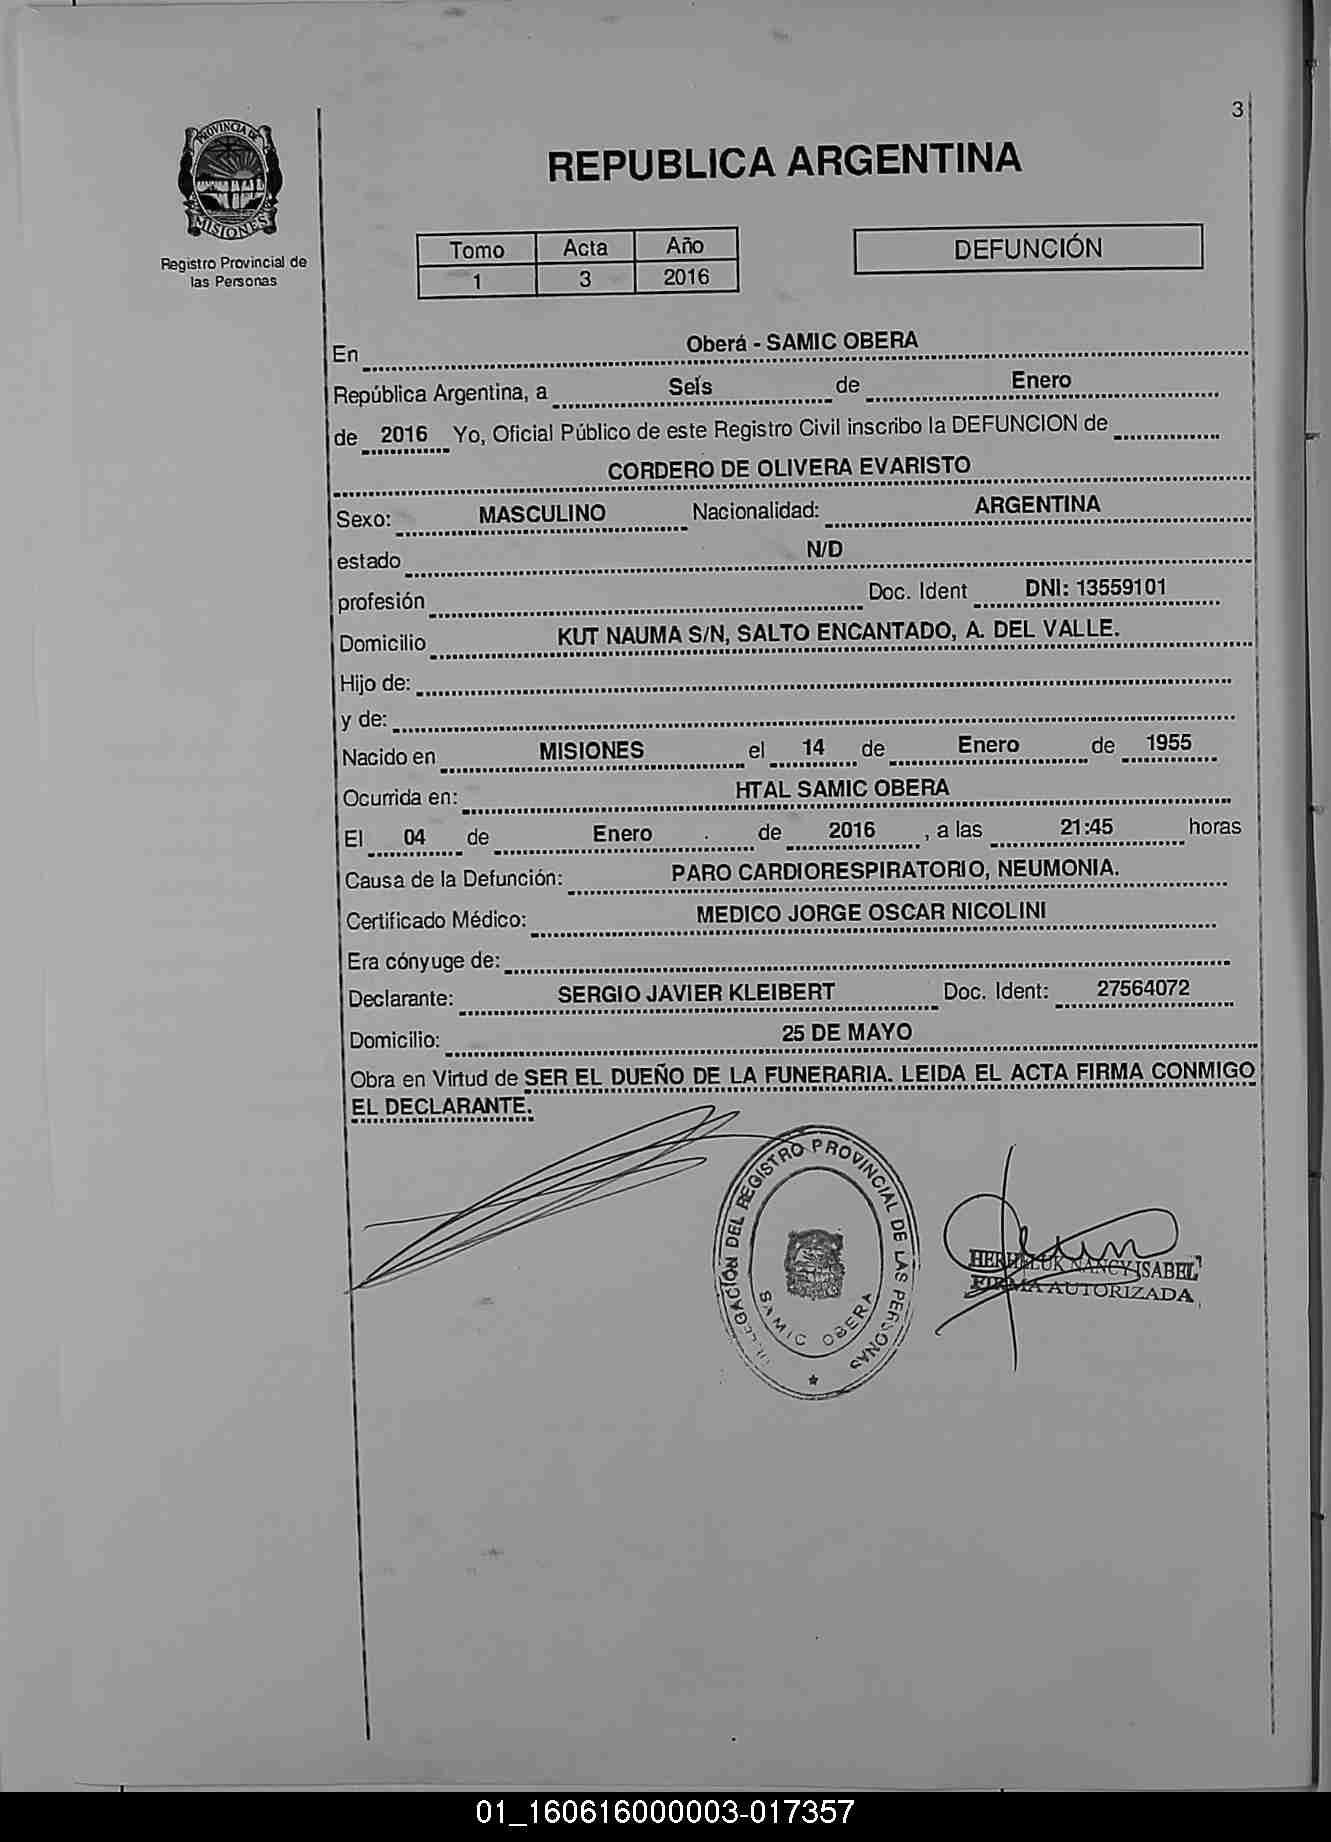 3
PROVINCIA DE
MISIONES
Registro Provincial de
las Personas
REPUBLICA ARGENTINA
Tomo Acta Año
1 3 2016
DEFUNCIÓN
En Oberá - SAMIC OBERA
República Argentina, a Seis de Enero
de 2016 Yo, Oficial Público de este Registro Civil inscribo la DEFUNCION de
CORDERO DE OLIVERA EVARISTO
Sexo: MASCULINO Nacionalidad: ARGENTINA
estado N/D
profesión Doc. Ident DNI: 13559101
Domicilio KUT NAUMA S/N, SALTO ENCANTADO, A. DEL VALLE.
Hijo de:
y de:
Nacido en MISIONES el 14 de Enero de 1955
Ocurrida en: HTAL SAMIC OBERA
El 04 de Enero de 2016 , a las 21:45 horas
Causa de la Defunción: PARO CARDIORESPIRATORIO, NEUMONIA.
Certificado Médico: MEDICO JORGE OSCAR NICOLINI
Era cónyuge de:
Declarante: SERGIO JAVIER KLEIBERT Doc. Ident: 27564072
Domicilio: 25 DE MAYO
Obra en Virtud de SER EL DUEÑO DE LA FUNERARIA. LEIDA EL ACTA FIRMA CONMIGO
EL DECLARANTE.
DELEGACIÓN DEL REGISTRO PROVINCIAL DE LAS PERSONAS
SAMIC OBERA
NANCY ISABEL
FIRMA AUTORIZADA
01_160616000003-017357